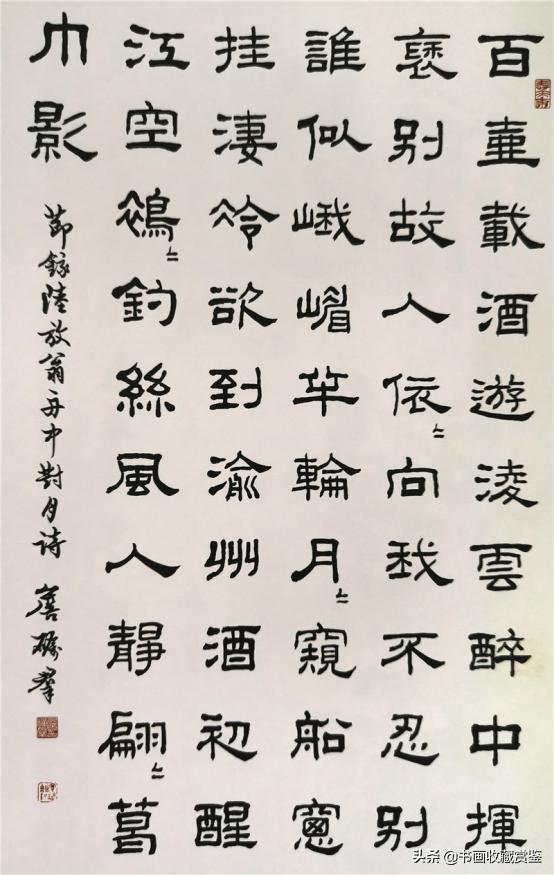 百壺載酒遊淩雲醉中揮
袖別故人依〻向我不忍別
誰似峨嵋半輪月〻窺船窻
挂淒冷欲到渝州酒初醒
江空裊〻釣絲風人靜翩〻葛
巾影
節錄陸放翁舟中對月詩
头条 @书画收藏赏鉴